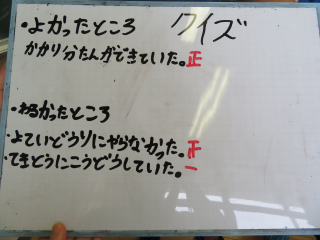 クイズ
・よかったところ
かかり分たんができていた。正
・わるかったところ
・よていどうりにやらなかった。正
・てきとうにこうどうしていた。一